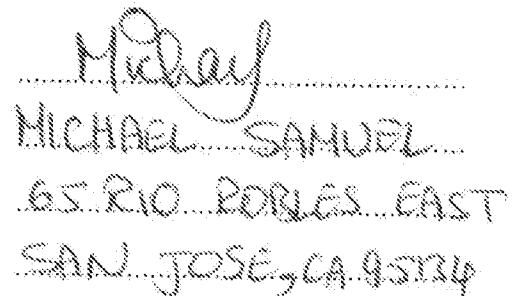 Michael
MICHAEL SAMUEL
65 RIO ROBLES EAST
SAN JOSE, CA 95134